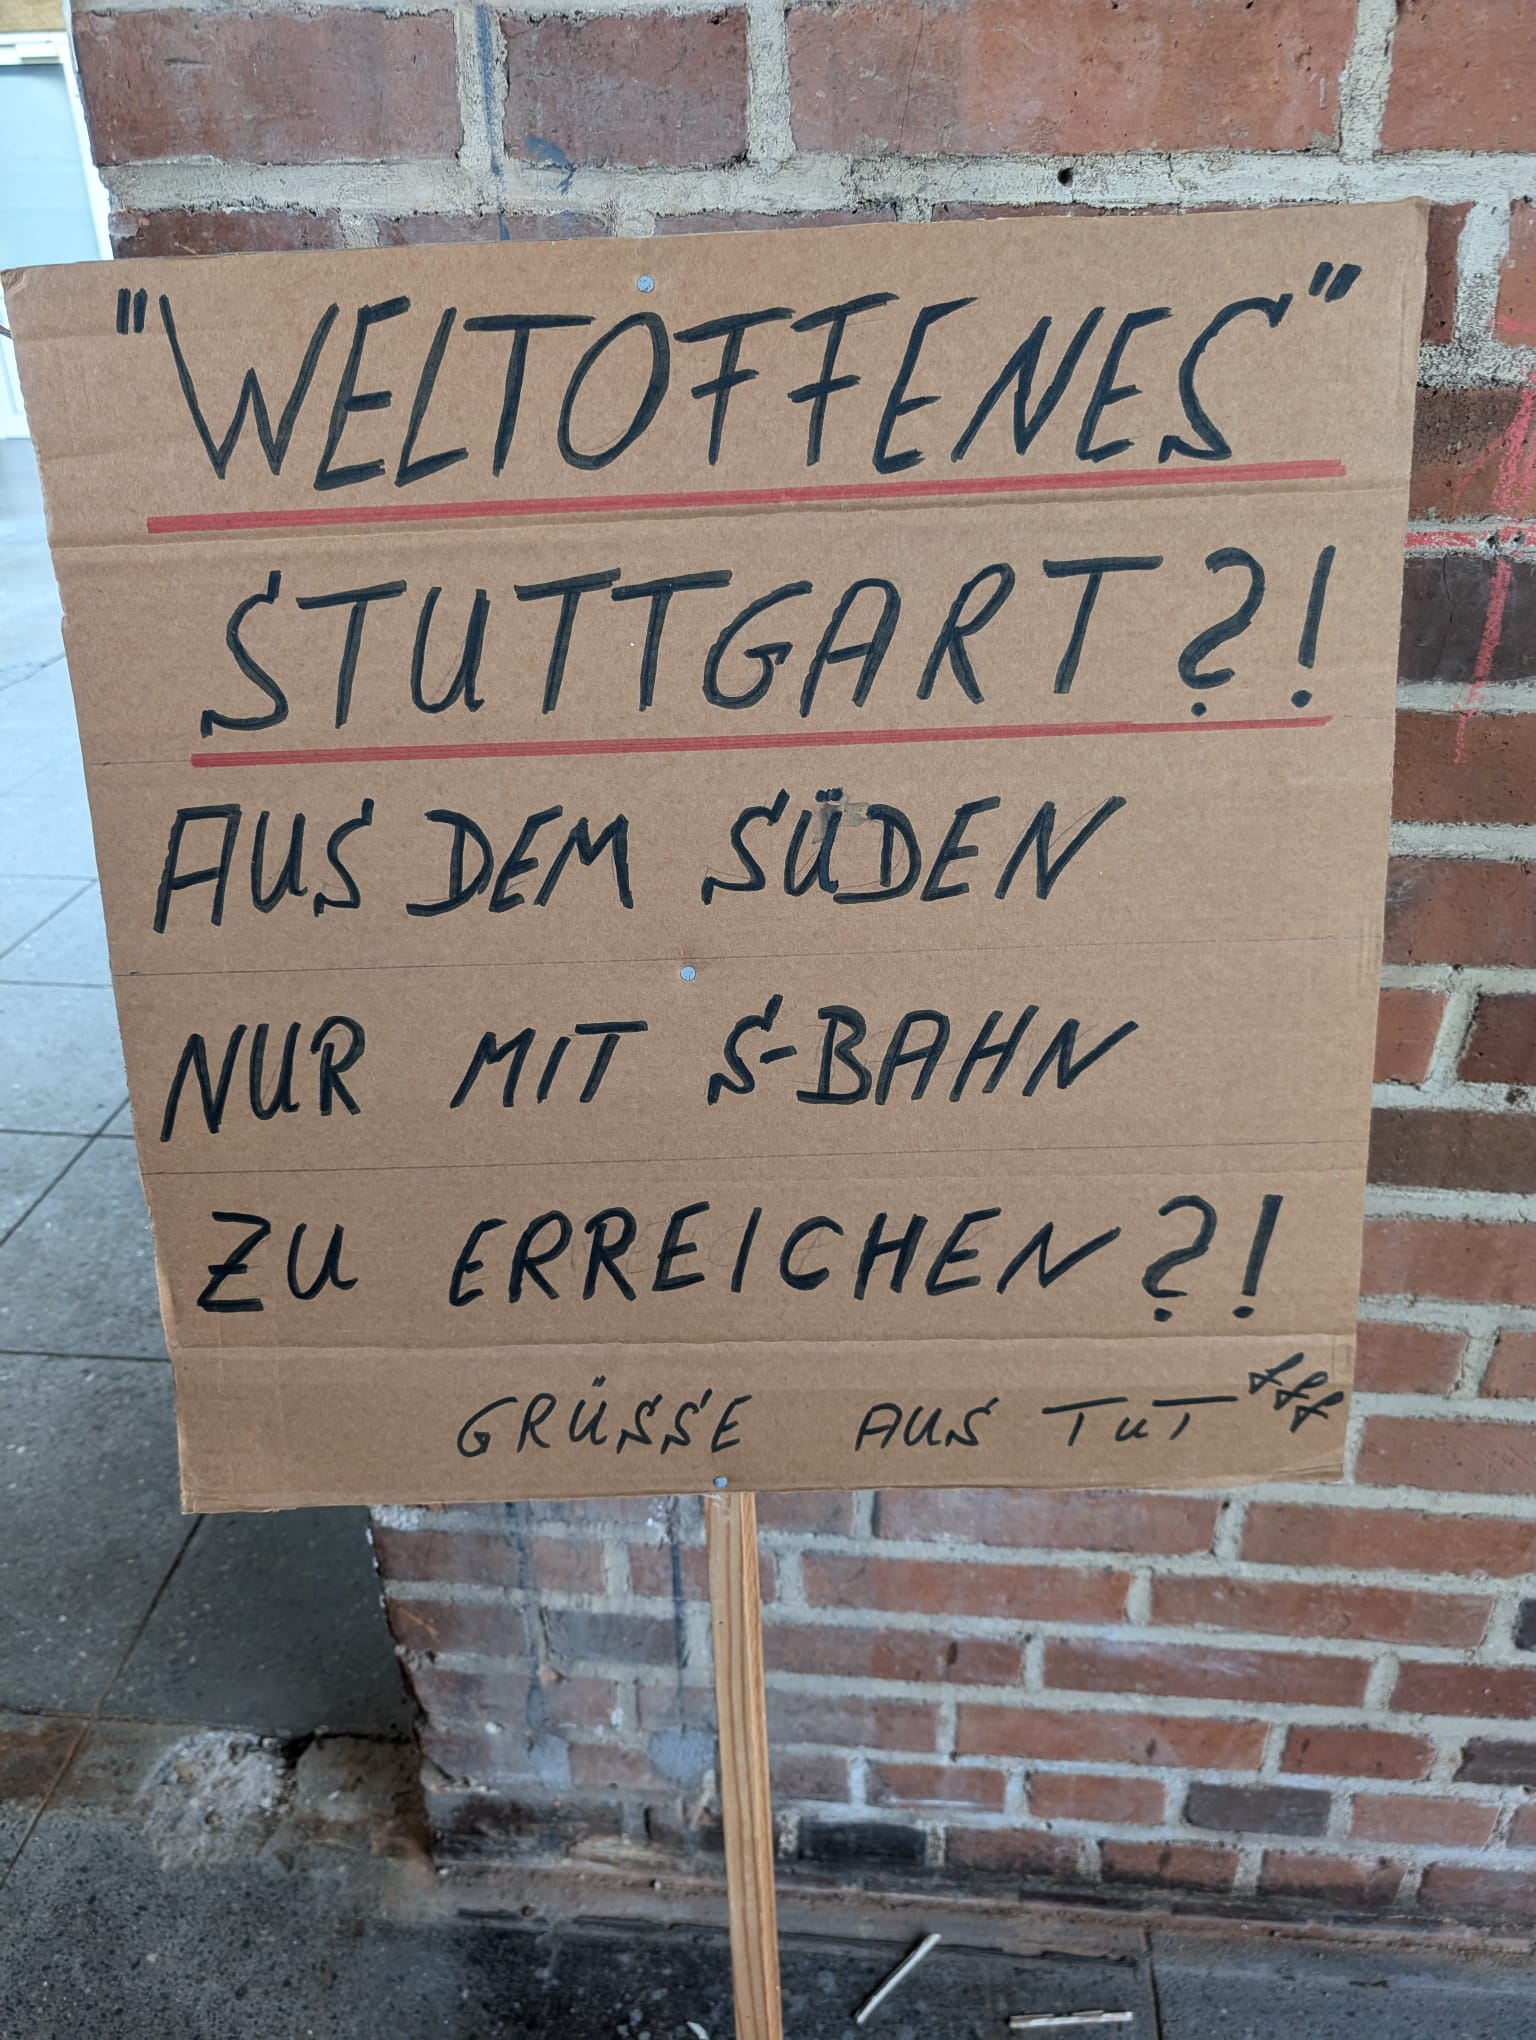 "WELTOFFENES"
STUTTGART?!
AUS DEM SÜDEN
NUR MIT S-BAHN
ZU ERREICHEN?!
GRÜSSE AUS TUT